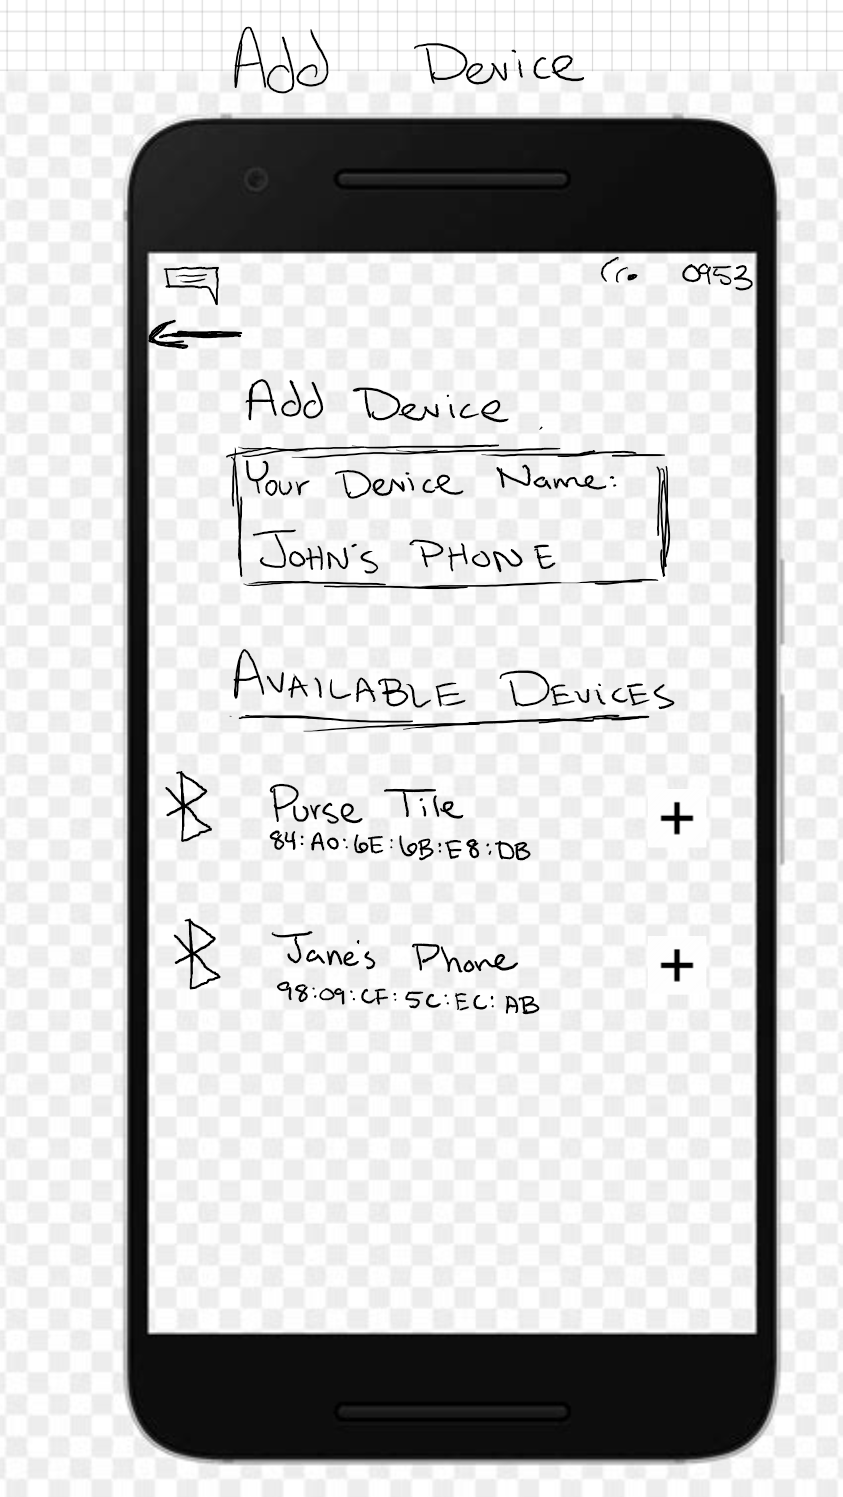 Add Device
0953
Add Device
Your Device Name:
JOHN'S PHONE
AVAILABLE DEVICES
Purse Tile
84:A0:6E:6B:E8:DB
Jane's Phone
98:09:CF:5C:EC:AB